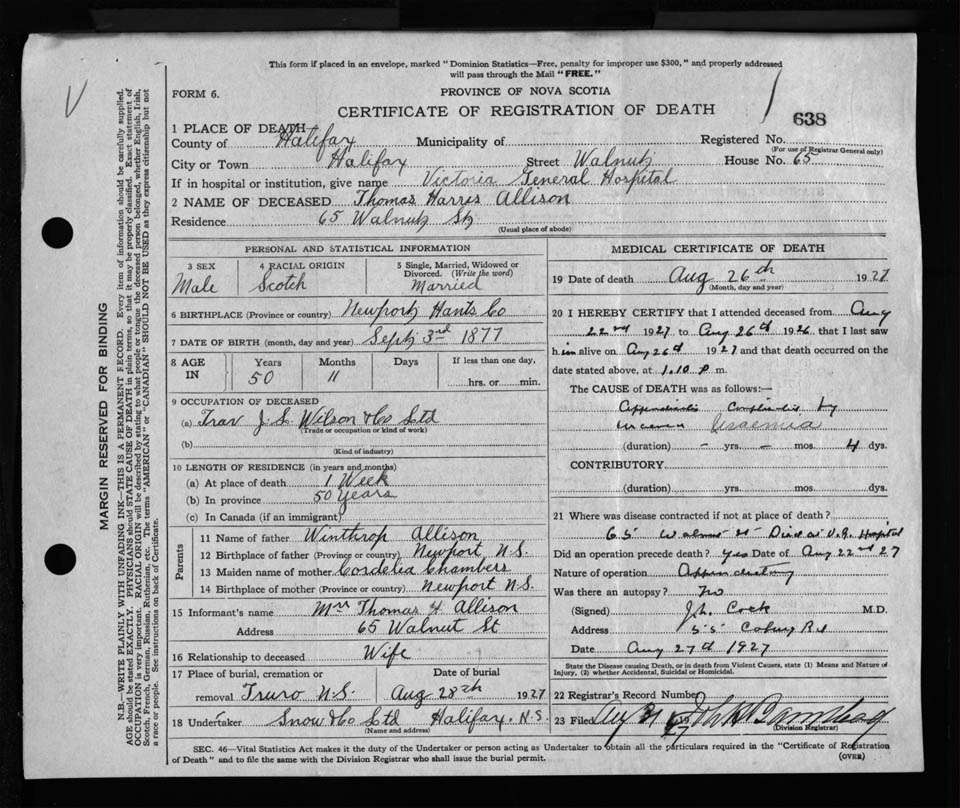 This form if placed in an envelope, marked "Dominion Statistics—Free, penalty for improper use $300," and properly addressed
will pass through the Mail "FREE."
FORM 6.
PROVINCE OF NOVA SCOTIA
CERTIFICATE OF REGISTRATION OF DEATH
638
1 PLACE OF DEATH
County of Halifax Municipality of Registered No.
(For use of Registrar General only)
City or Town Halifax Street Walnut House No. 65
If in hospital or institution, give name Victoria General Hospital
2 NAME OF DECEASED Thomas Harris Allison
Residence 65 Walnut St
(Usual place of abode)
PERSONAL AND STATISTICAL INFORMATION
3 SEX 4 RACIAL ORIGIN 5 Single, Married, Widowed or
Divorced. (Write the word)
Male Scotch Married
6 BIRTHPLACE (Province or country) Newport Hants Co
7 DATE OF BIRTH (month, day and year) Sept 3rd 1877
8 AGE IN Years Months Days If less than one day,
50 11 hrs. or min.
9 OCCUPATION OF DECEASED
(a) Trav J. S. Wilson & Co Ltd
(Trade or occupation or kind of work)
(b)
(Kind of industry)
10 LENGTH OF RESIDENCE (in years and months)
(a) At place of death 1 Week
(b) In province 50 years
(c) In Canada (if an immigrant)
Parents
11 Name of father Winthrop Allison
12 Birthplace of father (Province or country) Newport N.S.
13 Maiden name of mother Cordelia Chambers
14 Birthplace of mother (Province or country) Newport N.S.
15 Informant's name Mrs Thomas H Allison
Address 65 Walnut St
16 Relationship to deceased Wife
17 Place of burial, cremation or Date of burial
removal Truro N.S. Aug 28th 1927
18 Undertaker Snow & Co Ltd Halifax. N.S.
(Name and address)
MEDICAL CERTIFICATE OF DEATH
19 Date of death Aug 26th 1927
(Month, day and year)
20 I HEREBY CERTIFY that I attended deceased from Aug
22nd 1927 to Aug 26th 1926 that I last saw
him alive on Aug 26th 1927 and that death occurred on the
date stated above, at 1.10 p m.
The CAUSE of DEATH was as follows:—
Appendicitis Complicated by
uraemia Uraemia
(duration) – yrs. – mos. 4 dys.
CONTRIBUTORY
(duration) yrs. mos. dys.
21 Where was disease contracted if not at place of death?
65 Walnut St Died at V.G. Hospital
Did an operation precede death? yes Date of Aug 22nd 27
Nature of operation Appendectomy
Was there an autopsy? No
(Signed) Cock M.D.
Address 55 Coburg Rd
Date Aug 27th 1927
State the Disease causing Death, or in death from Violent Causes, state (1) Means and Nature of
Injury, (2) whether Accidental, Suicidal or Homicidal.
22 Registrar's Record Number
23 Filed 31 19 27
(Division Registrar)
SEC. 46—Vital Statistics Act makes it the duty of the Undertaker or person acting as Undertaker to obtain all the particulars required in the "Certificate of Registration
of Death" and to file the same with the Division Registrar who shall issue the burial permit.
(OVER)
MARGIN RESERVED FOR BINDING
N.B.—WRITE PLAINLY WITH UNFADING INK—THIS IS A PERMANENT RECORD. Every item of information should be carefully supplied.
AGE should be stated EXACTLY. PHYSICIANS should STATE CAUSE OF DEATH in plain terms, so that it may be properly classified. Exact statement of
OCCUPATION is very important. RACIAL ORIGIN will be described by stating to what people or tongue the deceased person belonged, whether English, Irish,
Scotch, French, German, Russian, Ruthenian, etc. The terms "AMERICAN" or "CANADIAN" SHOULD NOT BE USED as they express citizenship but not
a race or people. See instructions on back of Certificate.